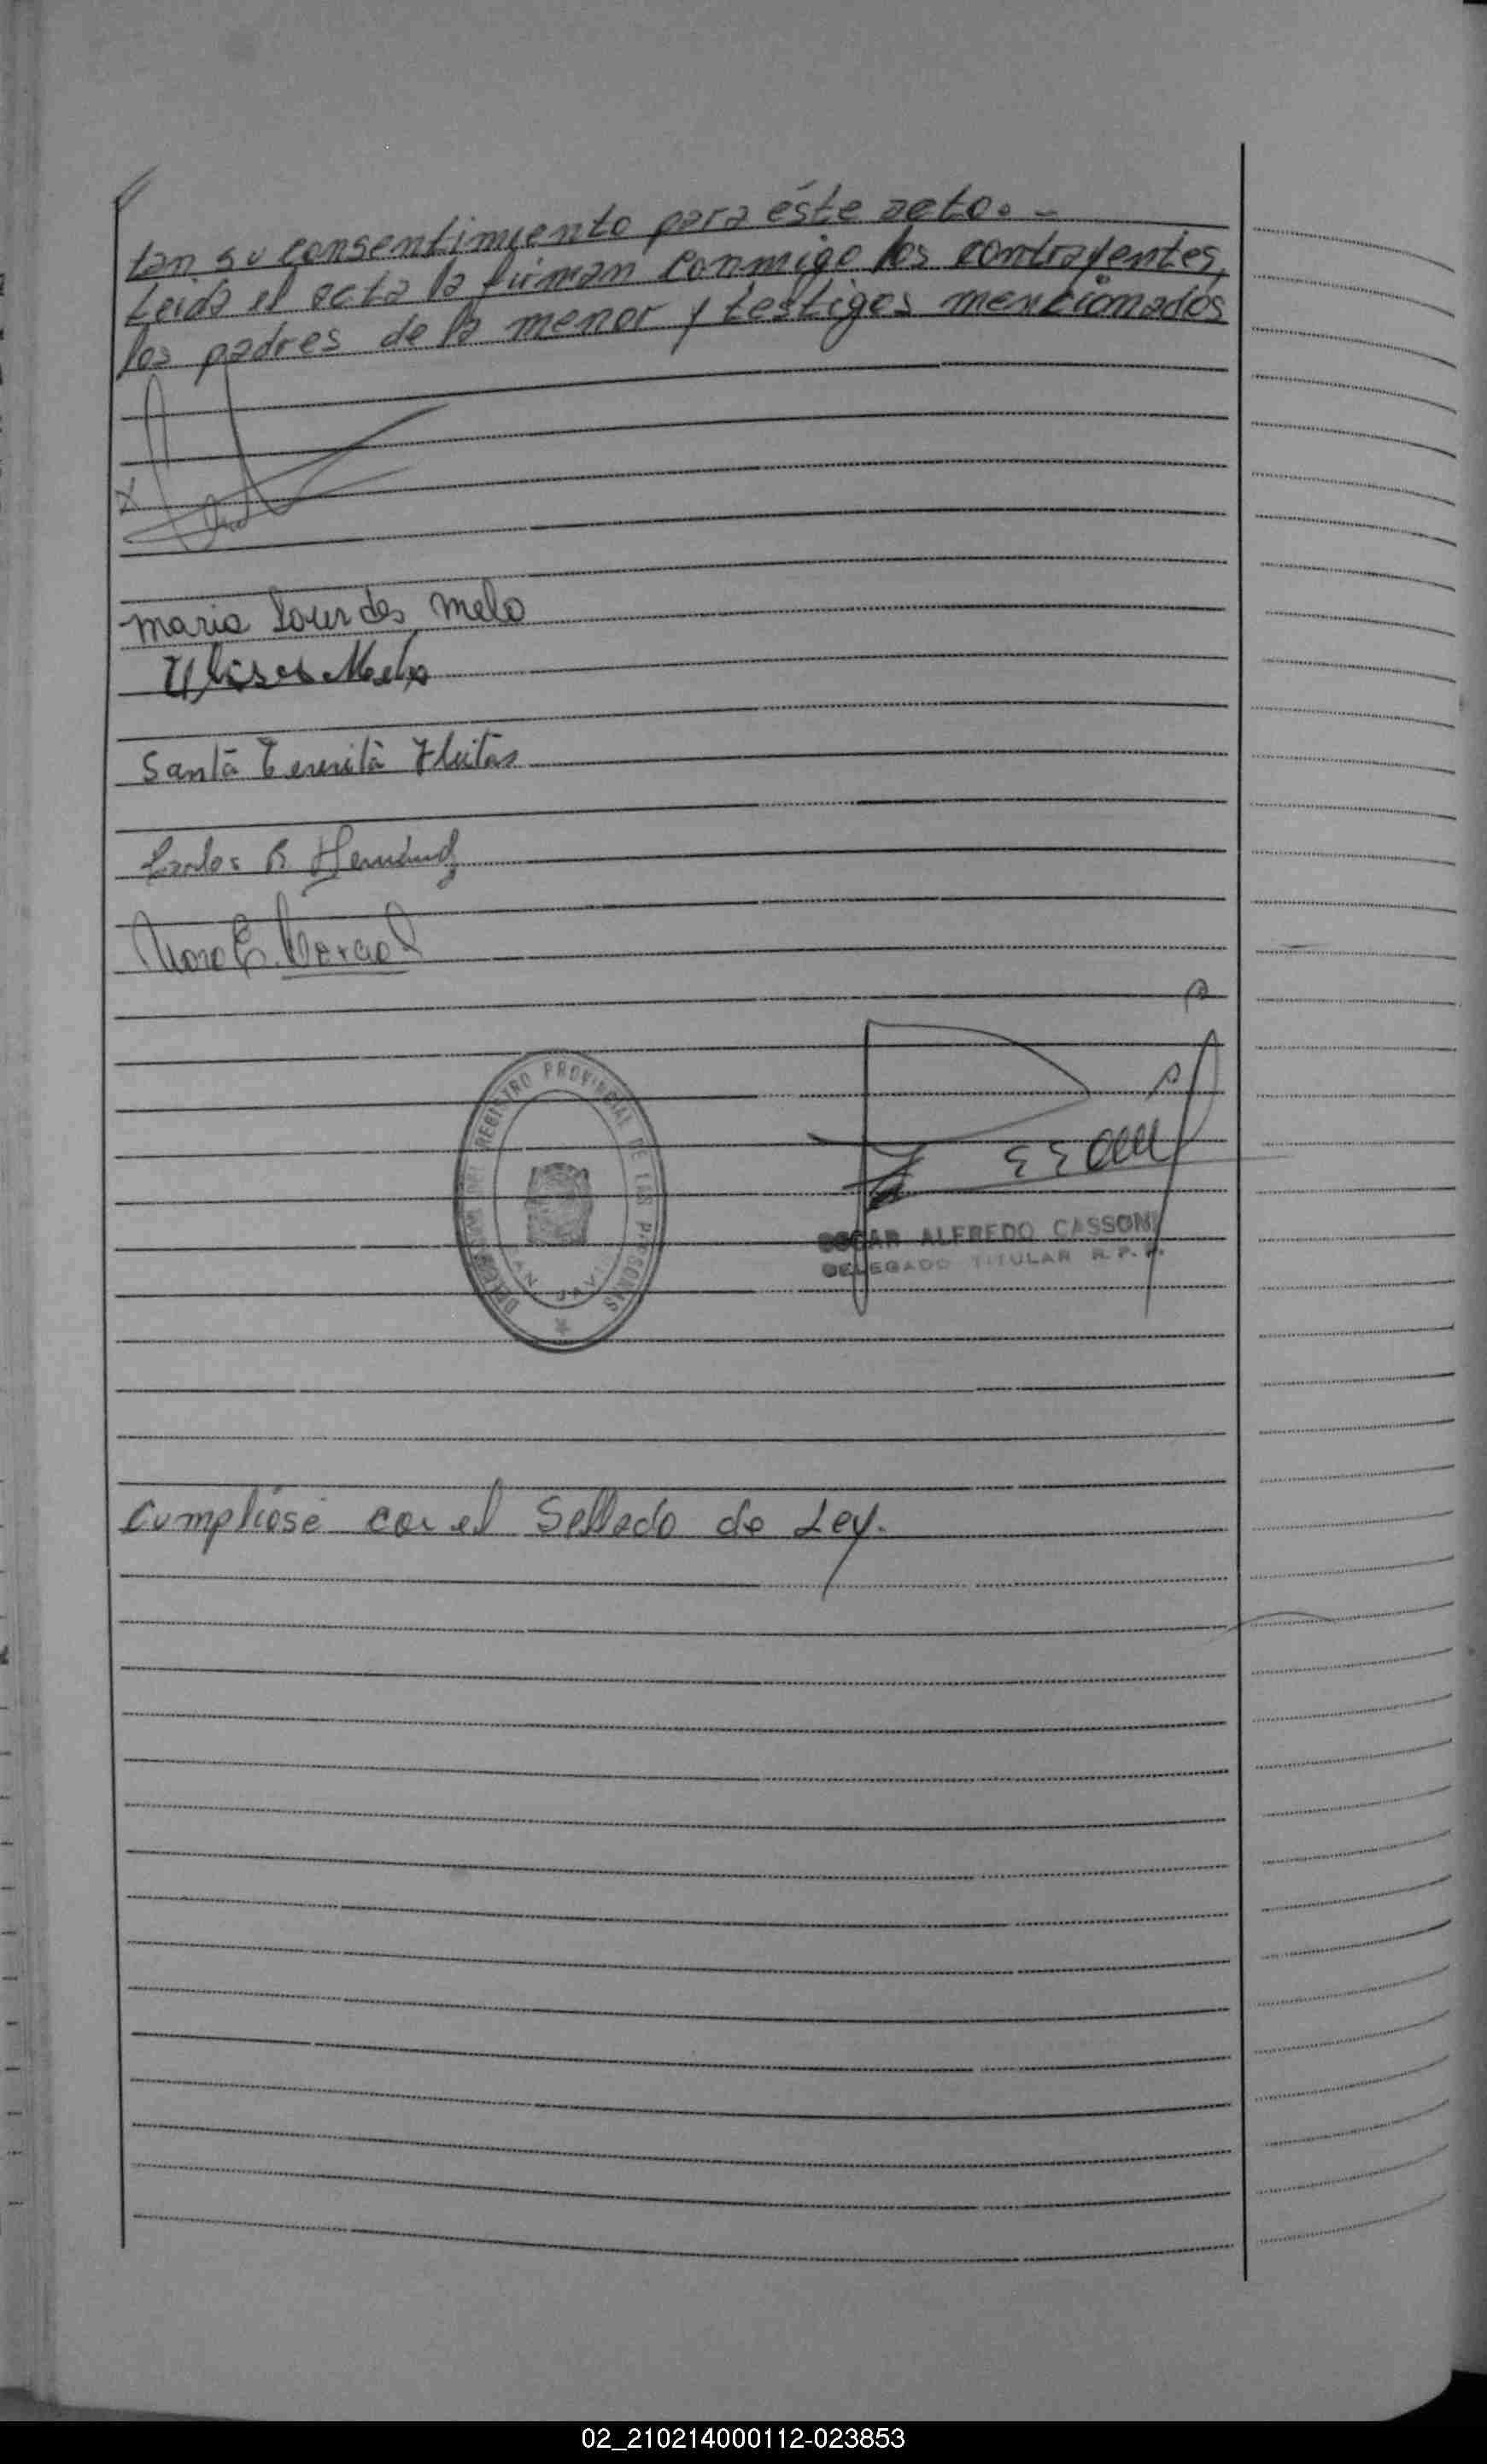 tan su consentimiento para éste acto. -
Leida el acta la firman conmigo los contrayentes,
los padres de la menor y testigos mencionados
X
Maria Lourdes Melo
Ulises Melo
Santa Teresita Fleitas
Carlos R
REGISTRO PROVINCIAL DE LAS PERSONAS
OSCAR ALFREDO CASSONI
DELEGADO TITULAR R. P. P.
Cumpliose con el Sellado de Ley.
02_210214000112-023853